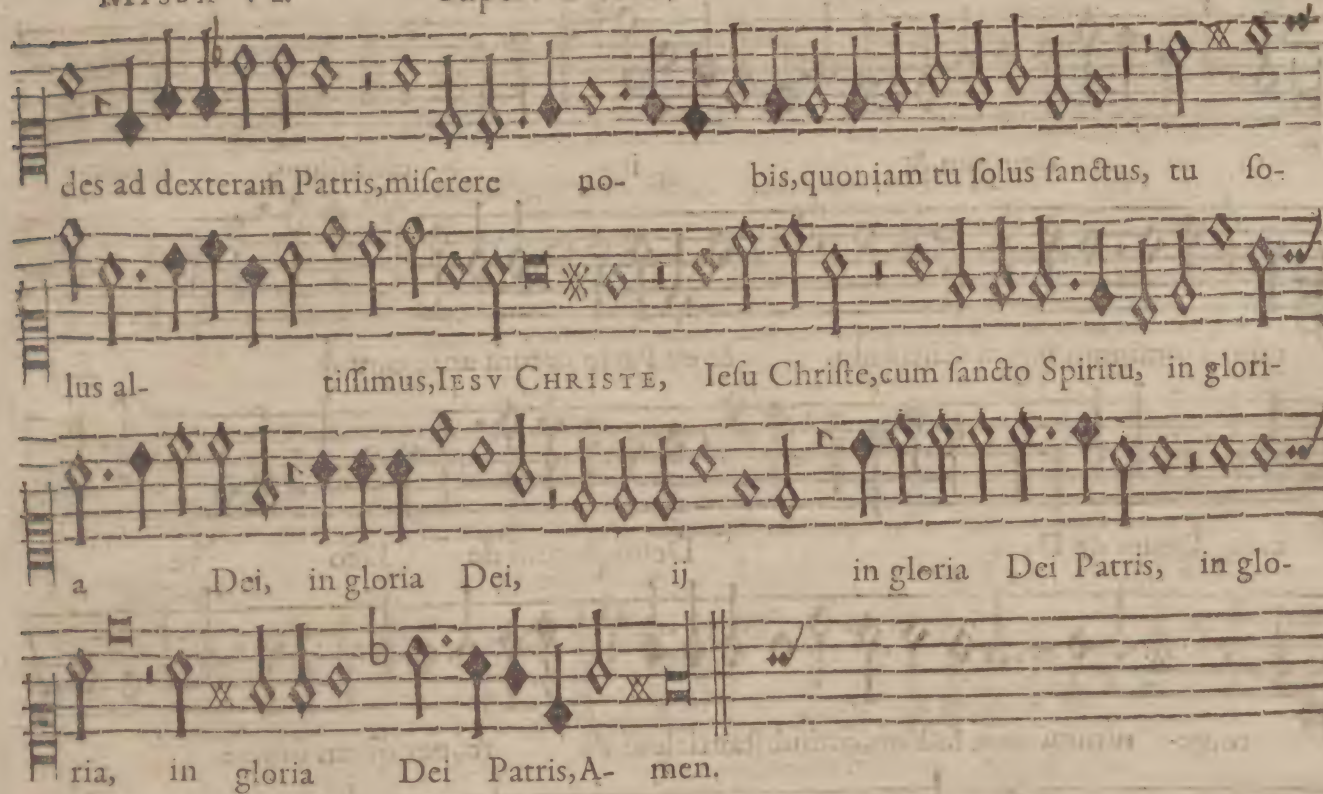 des ad dexteram Patris,miſerere no- bis,quoniam tu ſolus ſanctus, tu ſo-
lus al- tiſſimus,IESV CHRISTE, Ieſu Chriſte,cum ſancto Spiritu, in glori-
a Dei, in gloria Dei, ij in gloria Dei Patris, in glo-
ria, in gloria Dei Patris,A- men.